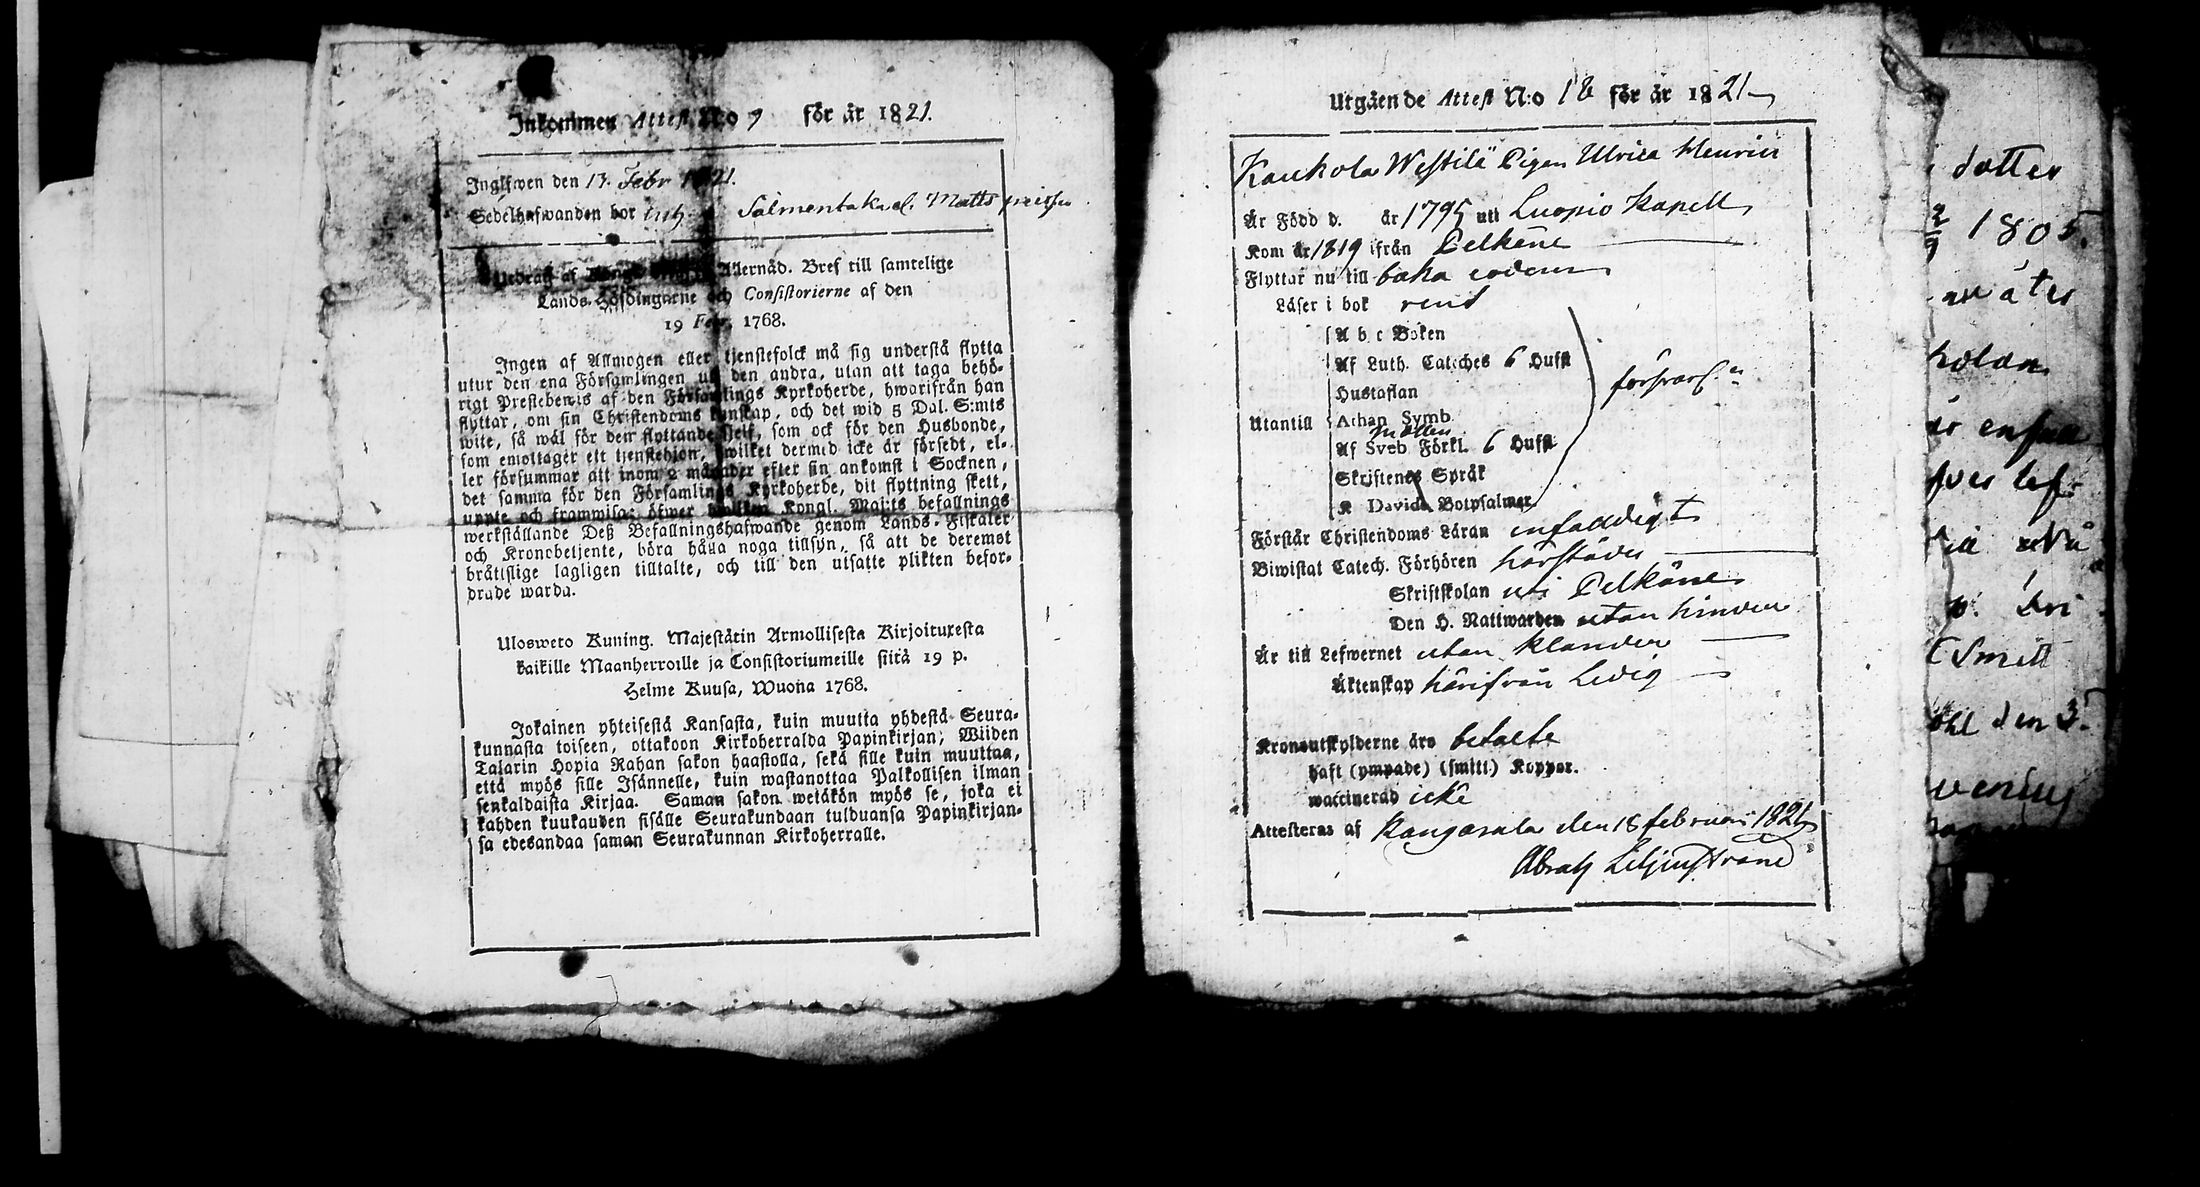 Inkommen Attest N:o 9 för år 1821.
Ingifwen den 13. Febr 1821.
Sedelhafwanden bor Salmentaka Matts
Utdrag af Kongl. Allernåd. Bref till samtelige
Lands-Höfdingarne och Consistorierne af den
19 Febr. 1768.
Ingen af Allmogen eller tjenstefolck må sig understå flytta
utur den ena Församlingen uti den andra, utan att taga behö-
rigt Prestebewis af den Församlings Kyrkoherde, hworifrån han
flyttar, om sin Christendoms kunskap, och det wid 5 Dal. S:mts
wite, så wäl för den flyttande sielf, som ock för den Husbonde,
som emottager ett tjenstehjon, hwilket dermed icke är försedt, el-
ler försummar att inom 2 månader efter sin ankomst i Socknen,
det samma för den Församlings Kyrkoherde, dit flyttning skett,
uppte och framwisa; öfwer hwilken Kongl. Maj:ts befallnings
werkställande Deß Befallningshafwande genom Lands-Fiskaler
och Kronobetjente, böra hålla noga tillsyn, så att de deremot
bråtislige lagligen tilltalte, och till den utsatte plikten befor-
drade warda.
Ulosweto Kuning. Majestätin Armollisesta Kirjoituxesta
kaikille Maanherroille ja Consistoriumeille siitä 19 p.
Helme Kuusa, Wuona 1768.
Jokainen yhteisestä Kansasta, kuin muutta yhdestä Seura-
kunnasta toiseen, ottakoon Kirkoherralda Papinkirjan; Wiiden
Talarin Hopia Rahan sakon haastolla, sekä sille kuin muuttaa,
että myös sille Isännelle, kuin wastanottaa Palkollisen ilman
senkaldaista Kirjaa. Saman sakon wetäkön myös se, joka ei
kahden kuukauden sisälle Seurakundaan tulduansa Papinkirjan-
sa edesandaa saman Seurakunnan Kirkoherralle.
Utgående Attest N:o 18 för år 1821
Kaukola Westilä Pigan Ulrica Henrics
Är Född d. år 1795 uti Luopio Kapell
Kom år 1819 ifrån Pelkäne
Flyttar nu till baka eodem
Läser i bok rent
A b c Boken
Af Luth. Cateches 6 Hufst
Hustaflan
Utantill Athan Symb
Af Sveb Förkl. 6 Hufst
Skriftenes Språk
K Davids Botpsalmer
försvarl.n
Förstår Christendoms Läran enfaldigt
Biwistat Catech. Förhören härstädes
Skriftskolan uti Pelkäne
Den H. Nattwarden utan hinder
Är till Lefwernet utan klander
Äktenskap härifrån ledig
Kronoutskylderne äro betalte
haft (ympade) (smitt.) Koppor.
waccinerad icke
Attesteras af Kangasala den 18 februari 1821
Abrah Liljenstrand
dotter
1805.
åter
den 3.